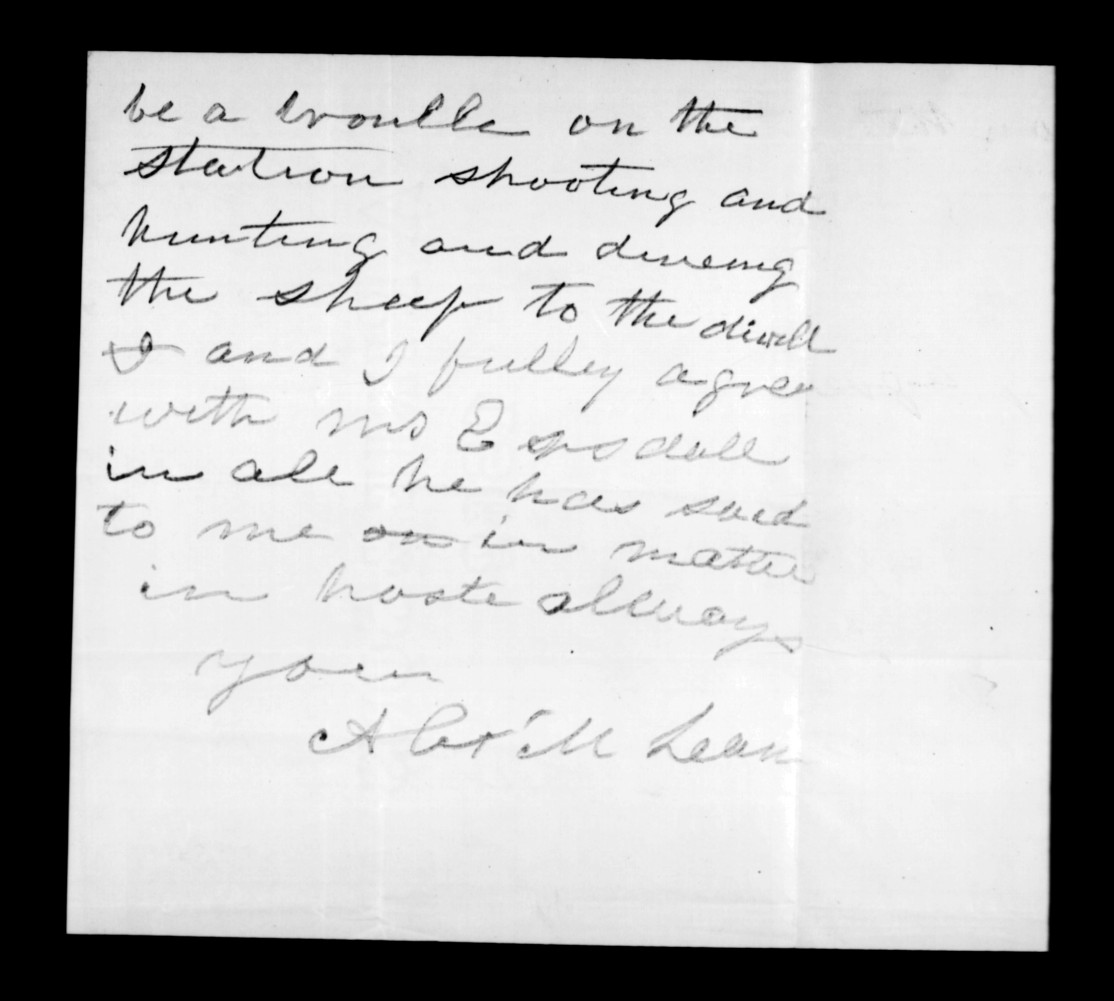 be a troulle on the
station shooting and
hunting and driveing
the sheep to the divell
I and I fulley agree
with Mr E
in all he has said
to me on in matter
in haste allways
your
Alex M Lean